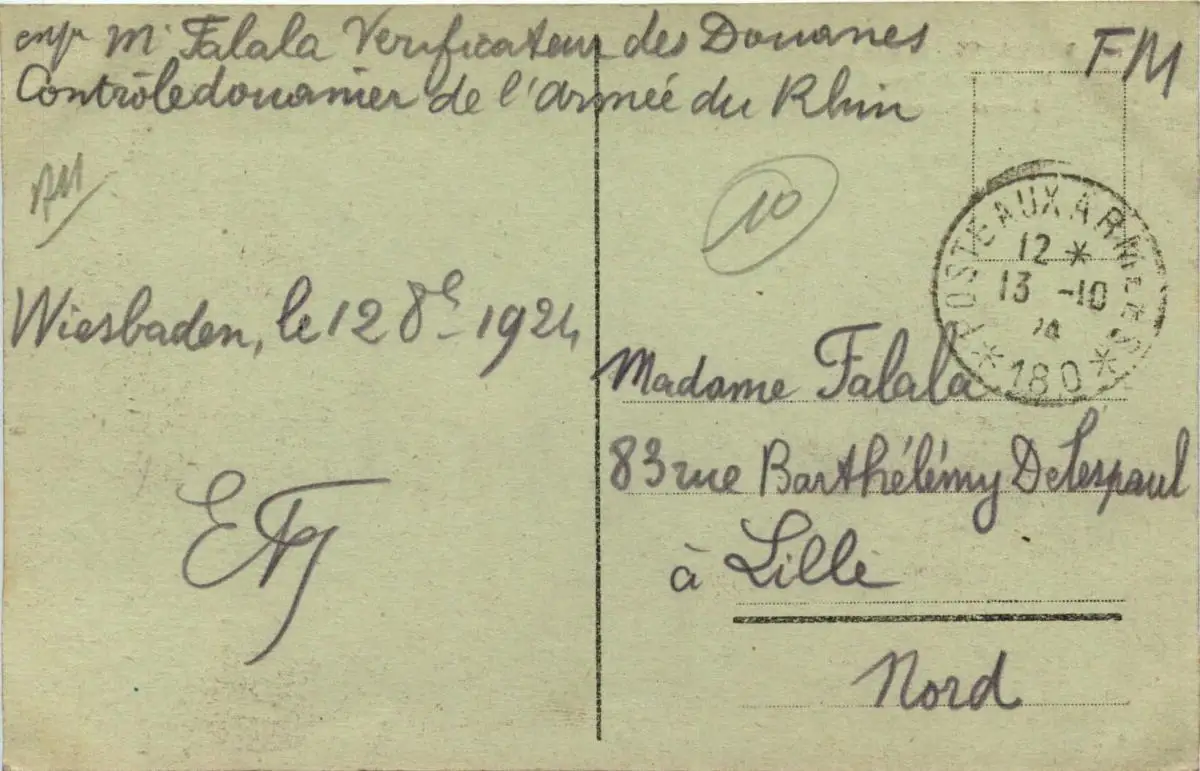 expr Mr Falala Verificateur des Douanes
Contrôle douanier de l'armée du Rhin
FM
10
POSTE AUX ARMEES
12 *
13 -10
24
* 180 *
Wiesbaden, le 12 8e 1924
Madame Falala
83 rue Barthélémy Delespaul
à Lille
Nord